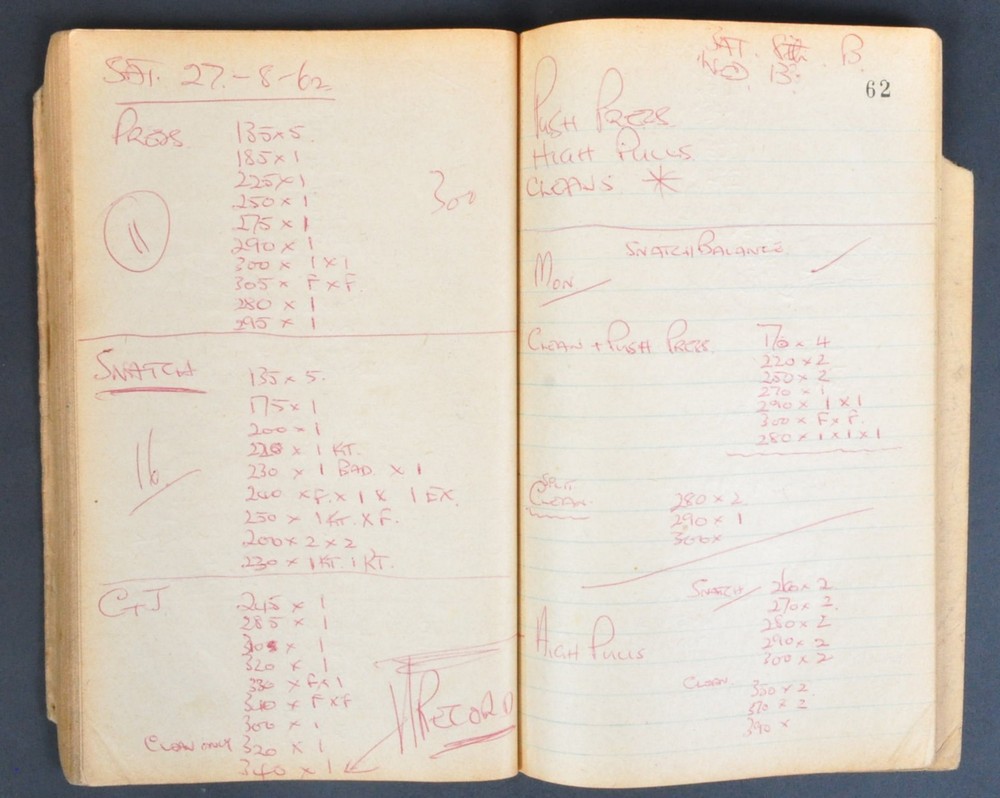 SAT. 27-8-62
PRESS 135x5.
185x1
225x1
250x1
11
275x1
290x1
300 x 1x1
305 x F x F.
280 x 1
295 x 1
300
SNATCH
135x5.
175x1
200x1
x 1 KT.
16.
230 x 1 BAD x 1
240 x F. x 1 & 1 EX.
250 x 1 KT. x F.
200 x 2 x 2
230 x 1 KT. 1 KT.
C+J 245 x 1
285 x 1
x 1
320 x 1
330 x Fx1
340 x FxF
300 x 1
CLEAN ONLY 320 x 1
340 x 1
RECORD
SAT. B.
WED. B.
62
PUSH PRESS
HIGH PULLS
CLEANS *
SNATCH BALANCE
MON
CLEAN + PUSH PRESS 170x4
220x2
250x2
270x1
290x 1x1
300x FxF.
280x1x1x1
SPLIT
CLEAN. 280x2
290x1
300x
HIGH PULLS
SNATCH 260x2
270x2.
280x2
290x2
300x2
CLEAN 350x2.
370x2
390x